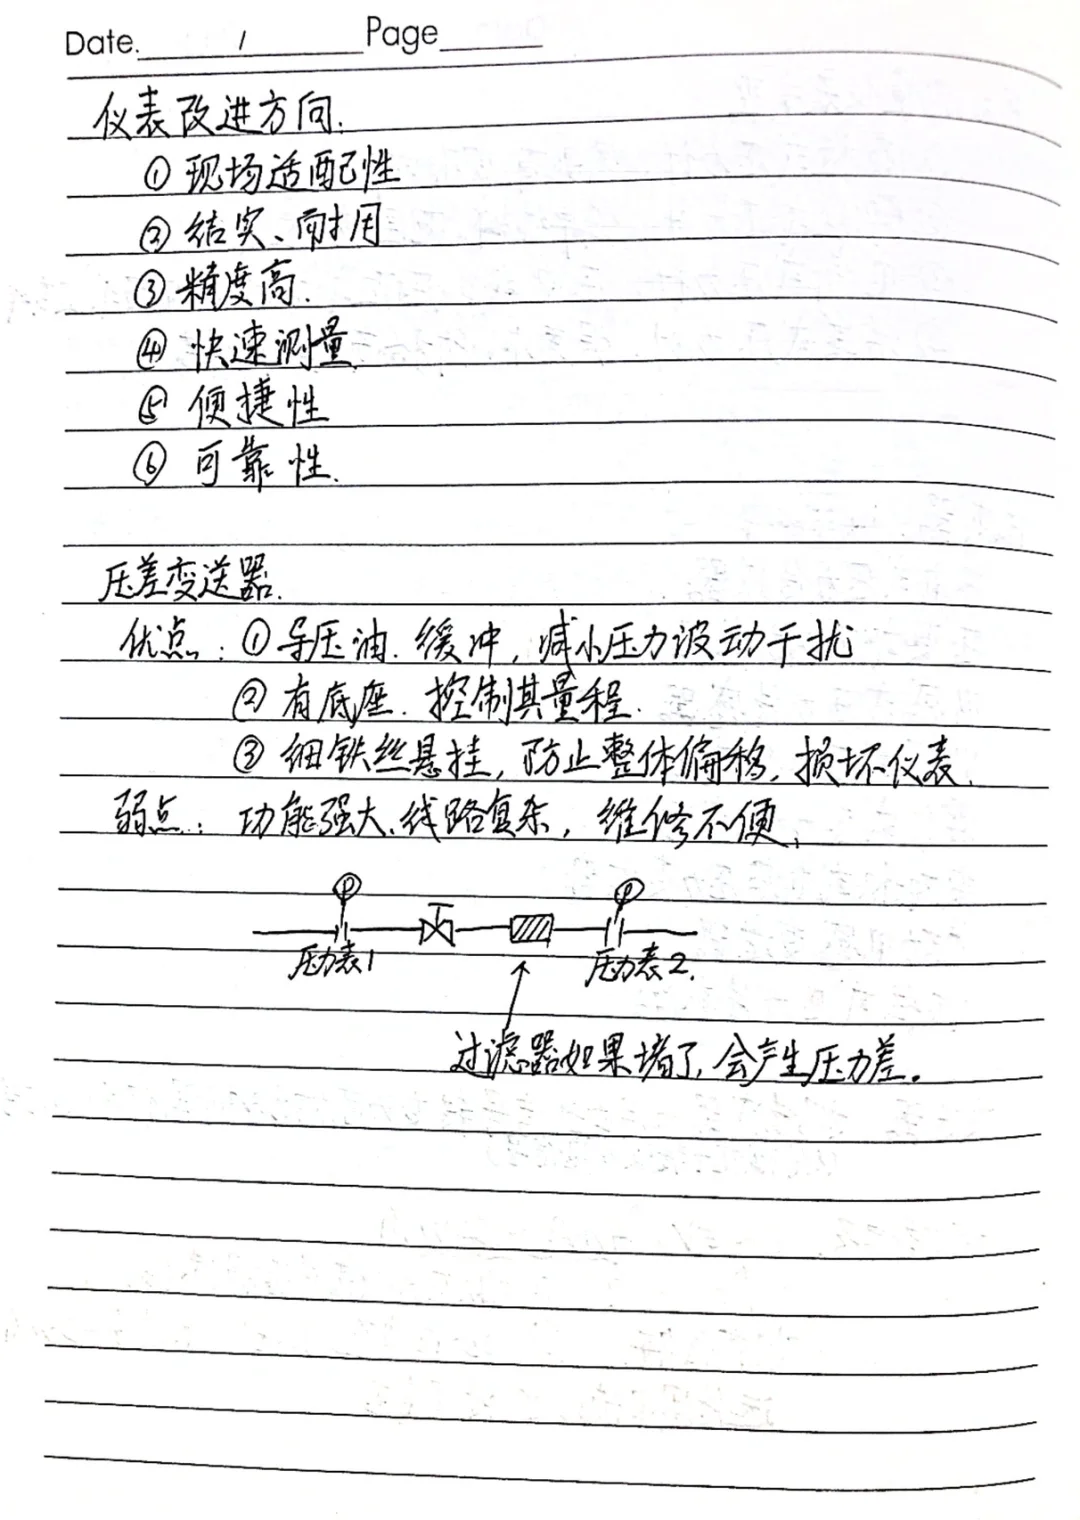 Date. / Page
仪表改进方向.
① 现场适配性
② 结实、耐用
③ 精度高.
④ 快速测量
⑤ 便捷性
⑥ 可靠性.
压差变送器.
优点: ① 导压油. 缓冲, 减小压力波动干扰
② 有底座. 控制其量程.
③ 细铁丝悬挂, 防止整体偏移, 损坏仪表.
弱点: 功能强大、线路复杂, 维修不便、
P P
压力表1 压力表2.
过滤器如果堵了, 会产生压力差。